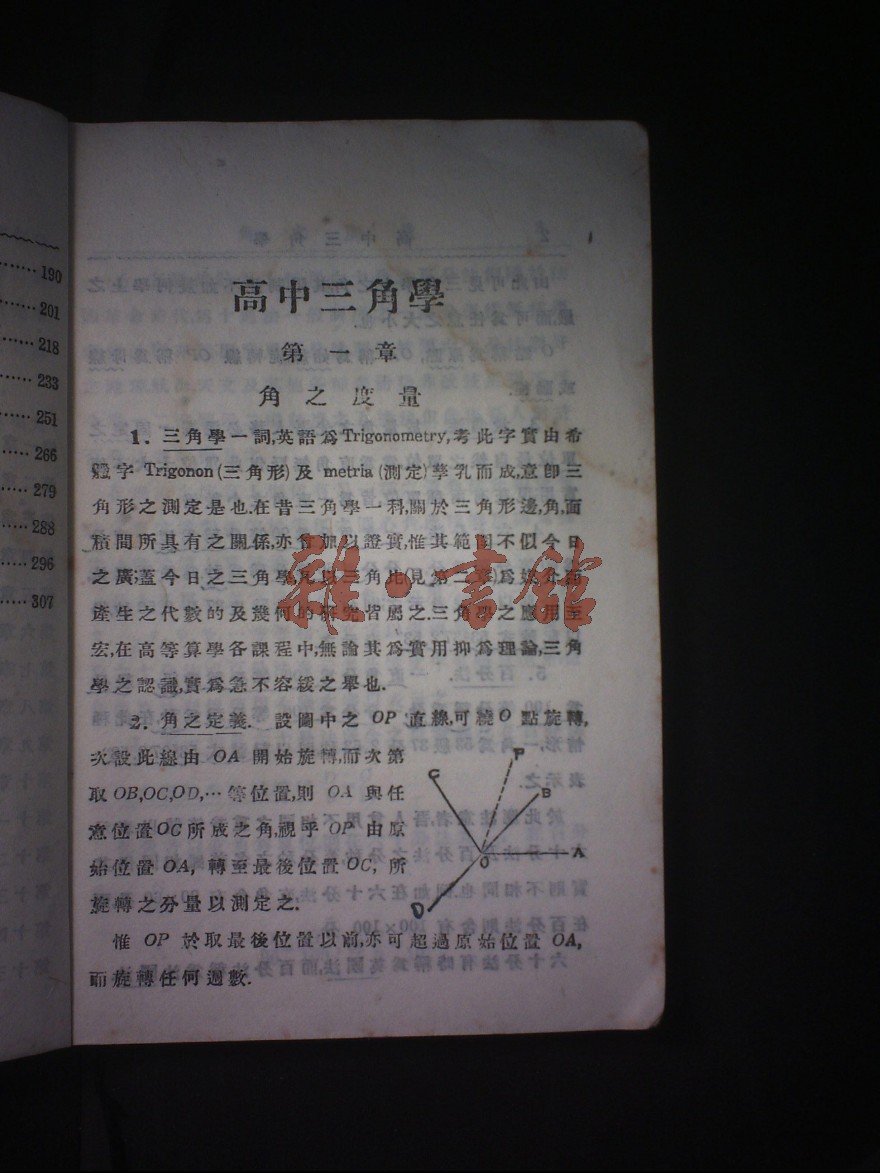 190
201
218
233
251
266
279
288
296
307
高中三角學
第一章
角之度量
1. 三角學一詞,英語爲Trigonometry,考此字實由希
臘字 Trigonon (三角形) 及 metria (測定) 孳乳而成,意卽三
角形之測定是也.在昔三角學一科,關於三角形邊,角,面
積間所具有之關係,亦曾加以證實,惟其範圍不似今日
之廣;蓋今日之三角學,凡以三角比(見第二章)爲媒介而
產生之代數的及幾何的研究皆屬之.三角學之應用至
宏,在高等算學各課程中,無論其爲實用抑爲理論,三角
學之認識,實爲急不容緩之舉也.
2. 角之定義. 設圖中之 OP 直線,可繞 O 點旋轉,
次設此線由 OA 開始旋轉,而次第
取OB,OC,OD,…等位置,則 OA 與任
意位置OC所成之角,視乎 OP 由原
始位置OA,轉至最後位置OC,所
旋轉之分量以測定之.
C
P
B
O
A
D
惟 OP 於取最後位置以前,亦可超過原始位置 OA,
而旋轉任何週數.
雜·書館